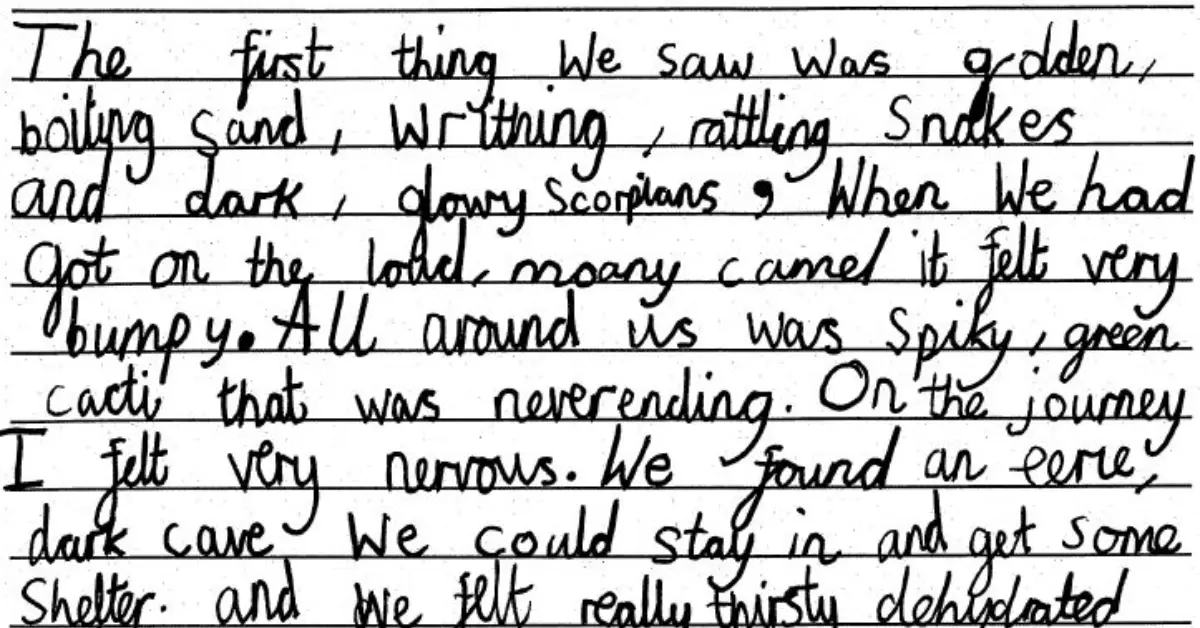 The first thing We saw was golden,
boiling sand, Writhing, rattling Snakes
and dark, glowy scorpians, When We had
Got on the loud, moany camel it felt very
bumpy. All around us was Spiky, green
cacti that was neverending. On the journey
I felt very nervous. We found an eerie,
dark cave We could stay in and get some
Shelter. and We felt really thirsty dehydrated